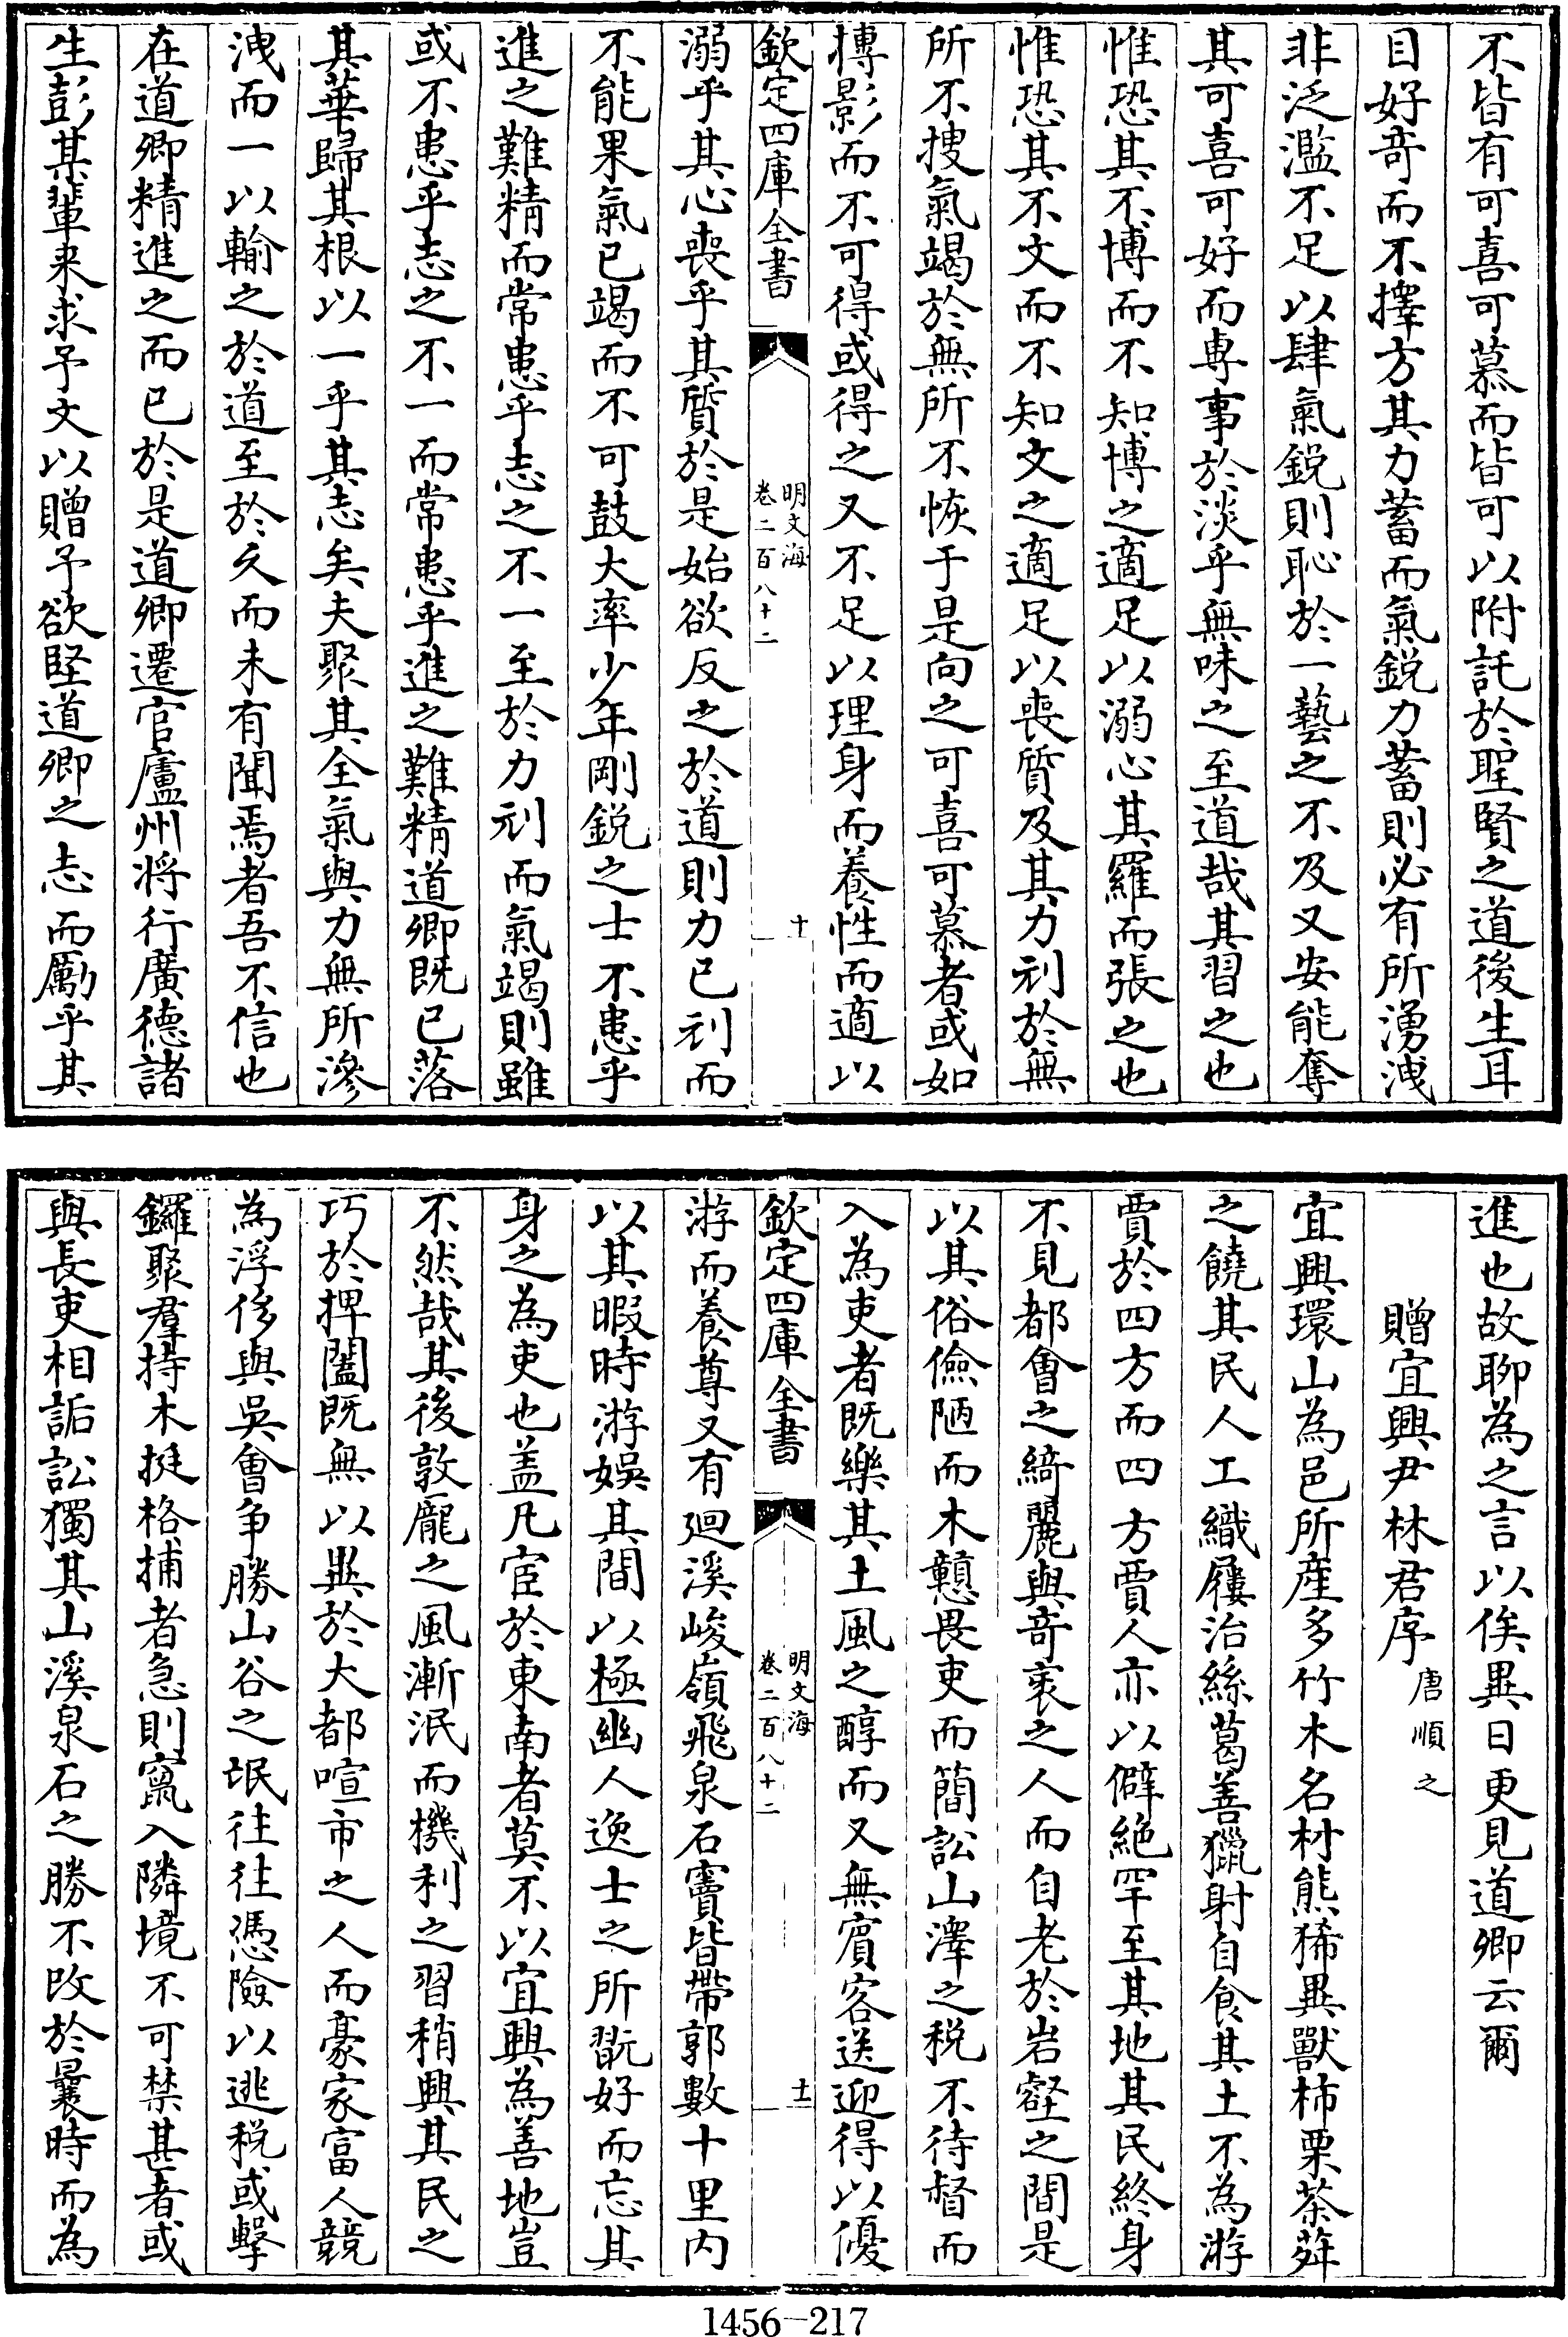 不皆有可喜可慕而皆可以附託於聖賢之道後生耳
目好竒而不擇方其力蓄而氣銳力蓄則必有所湧洩
非泛濫不足以肆氣銳則恥於一藝之不及又安能奪
其可喜可好而專事於淡乎無味之至道哉其習之也
惟恐其不博而不知博之適足以溺心其羅而張之也
惟恐其不文而不知文之適足以喪質及其力刓於無
所不搜氣竭於無所不恢于是向之可喜可慕者或如
摶影而不可得或得之又不足以理身而養性而適以
欽定四庫全書
明文海
卷二百八十二
十
溺乎其心喪乎其質於是始欲反之於道則力已刓而
不能果氣已竭而不可鼓大率少年剛銳之士不患乎
進之難精而常患乎志之不一至於力刓而氣竭則雖
或不患乎志之不一而常患乎進之難精道卿既已落
其華歸其根以一乎其志矣夫聚其全氣與力無所滲
洩而一以輸之於道至於久而未有聞焉者吾不信也
在道卿精進之而已於是道卿遷官廬州將行廣德諸
生彭某輩来求予文以贈予欲堅道卿之志而勵乎其
進也故聊為之言以俟異日更見道卿云爾
贈宜興尹林君序 唐順之
宜興環山為邑所産多竹木名材熊狶異獸柿栗茶荈
之饒其民人工織屨治絲葛善獵射自食其土不為游
賈於四方而四方賈人亦以僻絶罕至其地其民終身
不見都會之綺麗與竒衺之人而自老於岩壑之間是
以其俗儉陋而木戇畏吏而簡訟山澤之税不待督而
入為吏者既樂其土風之醇而又無賓客送迎得以優
欽定四庫全書
明文海
卷二百八十二
十一
游而養尊又有廻溪峻嶺飛泉石竇皆帶郭數十里内
以其暇時游娱其間以極幽人逸士之所翫好而忘其
身之為吏也盖凡宦於東南者莫不以宜興為善地豈
不然哉其後敦龐之風漸泯而機利之習稍興其民之
巧於捭闔既無以異於大都喧市之人而豪家富人競
為浮侈與吳會争勝山谷之氓往往憑險以逃税或擊
鑼聚羣持木挺格捕者急則竄入隣境不可禁甚者或
與長吏相詬訟獨其山溪泉石之勝不改於曩時而為
1456-217